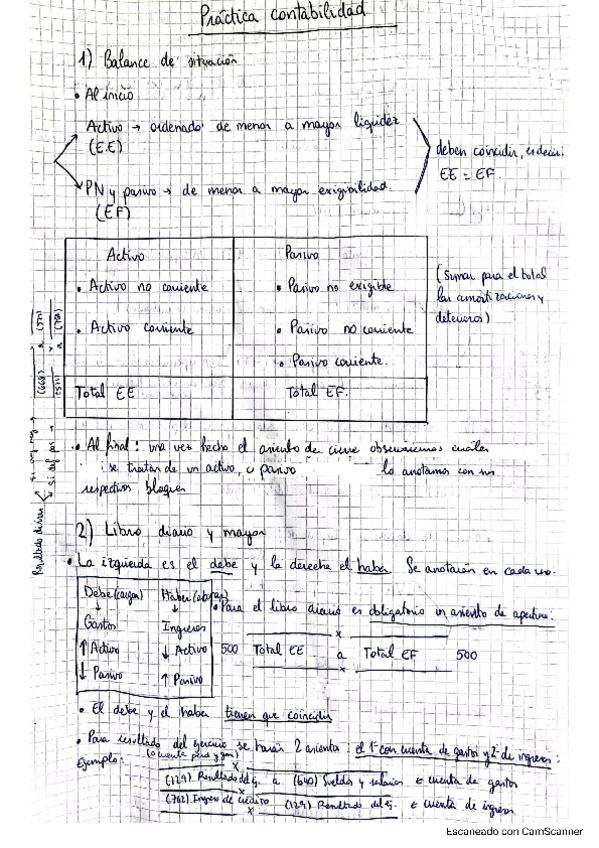 Práctica contabilidad
1) Balance de situación
• Al inicio
Activo → ordenado de menor a mayor liquidez
(E.E)
deben coincidir, es decir:
EE = EF.
PN y pasivo → de menor a mayor exigibilidad.
(EF)
Activo
Pasivo
• Activo no corriente
• Pasivo no exigible
• Activo corriente
• Pasivo no corriente
• Pasivo corriente.
Total EE
Total EF.
(Sumar para el total
las amortizaciones y
deterioros)
• Al final: una vez hecho el asiento de cierre observaremos cuales
se tratan de un activo, o pasivo, lo anotamos con sus
respectivos bloques
2) Libro diario y mayor
• La izquierda es el debe y la derecha el haber. Se anotarán en cada uno.
Debe (cargar)
Haber (abonar)
↓
↓
Gastos
Ingresos
↑ Activo
↓ Activo
↓ Pasivo
↑ Pasivo
• Para el libro diario es obligatorio un asiento de apertura:
x
500 Total EE a Total EF 500
x
• El debe y el haber tienen que coincidir
• Para resultado del ejercicio se harán 2 asientos: el 1º con cuenta de gastos y 2º de ingresos:
Ejemplo:
x
(129) Resultado del ej. a (640) Sueldos y salarios ← cuenta de gastos
x
(762) Ingreso de crédito (129) Resultado del ej. ← cuenta de ingresos
x
Escaneado con CamScanner